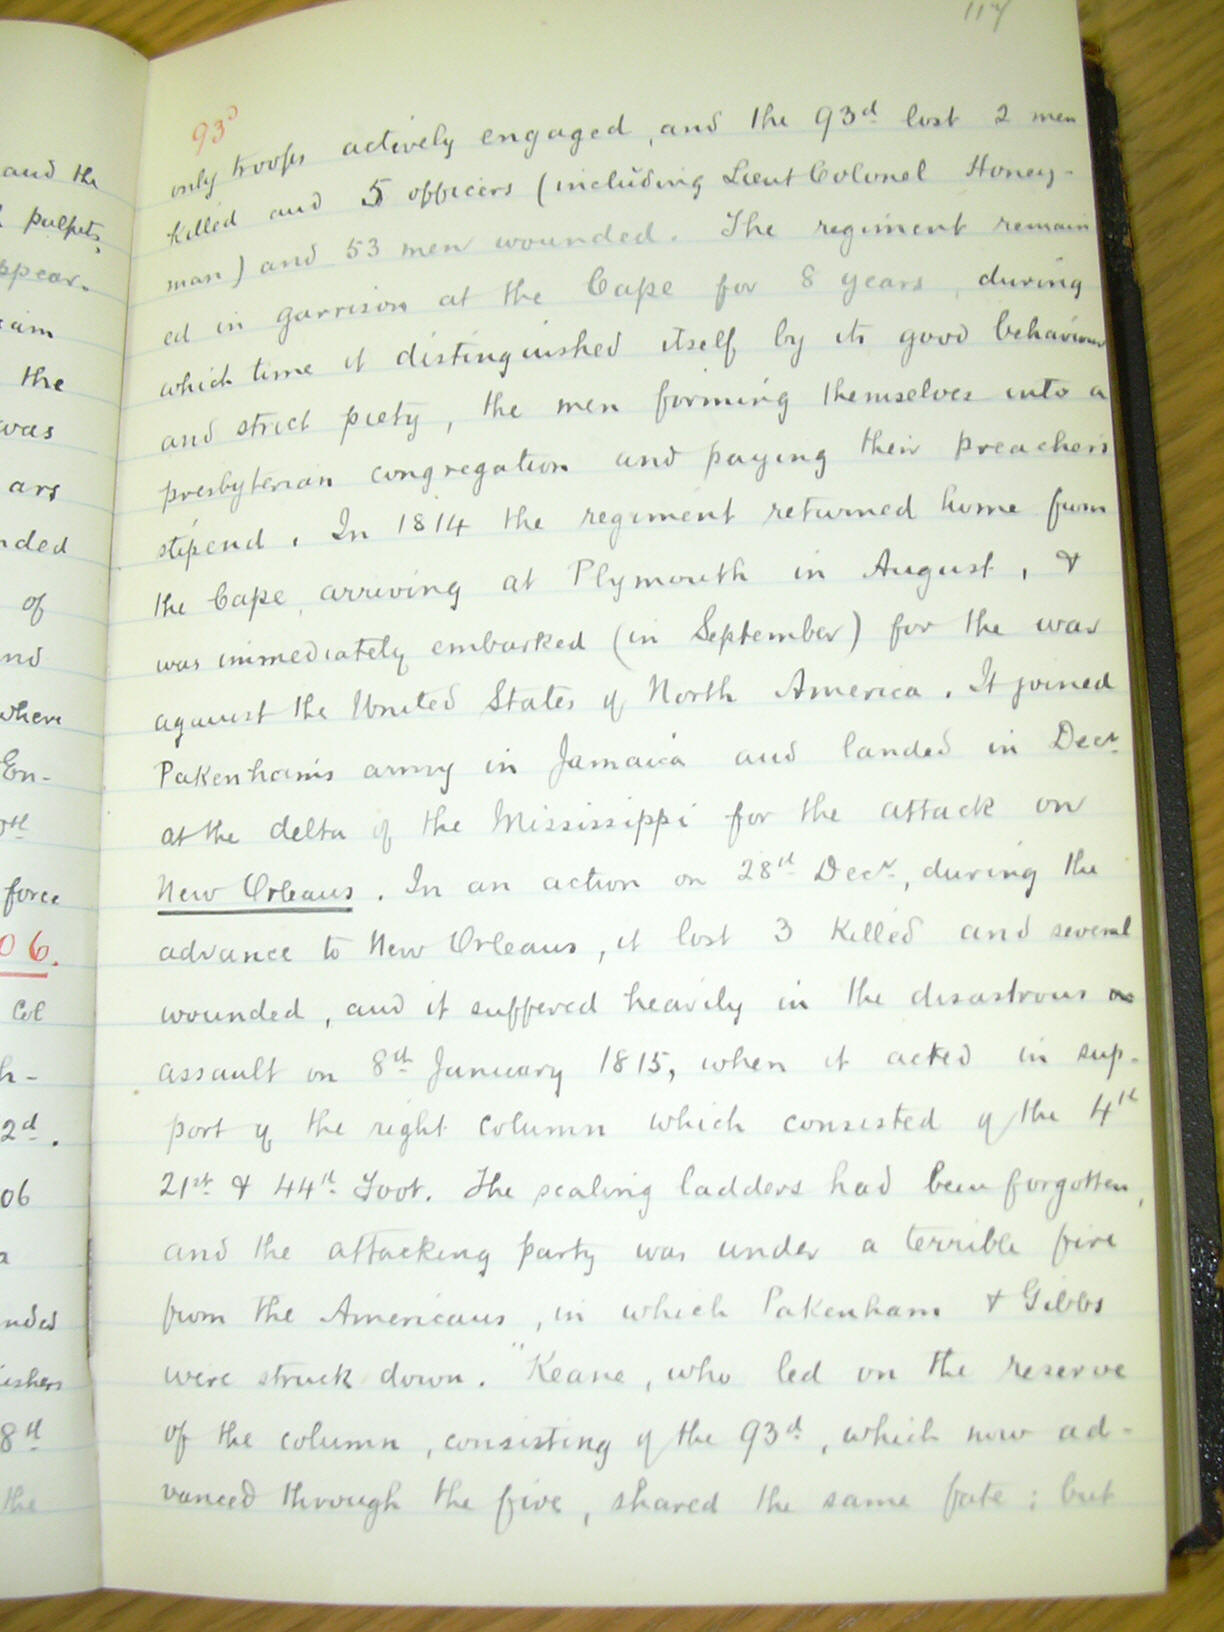 117
93d
only troops actively engaged, and the 93d lost 2 men
killed and 5 officers (including Lieut Colonel Honey-
man) and 53 men wounded. The regiment remain
ed in garrison at the Cape for 8 years, during
which time it distinguished itself by its good behaviour
and strict piety, the men forming themselves into a
presbyterian congregation and paying their preachers
stipend. In 1814 the regiment returned home from
the Cape, arriving at Plymouth in August, &
was immediately embarked (in September) for the war
against the United States of North America. It joined
Pakenham's army in Jamaica and landed in Decr
at the delta of the Mississippi for the attack on
New Orleans. In an action on 28th Decr, during the
advance to New Orleans, it lost 3 killed and several
wounded, and it suffered heavily in the disastrous
assault on 8th January 1815, when it acted in sup-
port of the right column which consisted of the 4th
21st & 44th Foot. The scaling ladders had been forgotten,
and the attacking party was under a terrible fire
from the Americans, in which Pakenham & Gibbs
were struck down. "Keane, who led on the reserve
of the column, consisting of the 93d, which now ad-
vanced through the fire, shared the same fate; but
and the
pulpits,
ppear-
the
was
ars
nded
of
nd
where
En-
force
06.
Col
h-
2d.
06
a
nded
ishers
8th
the